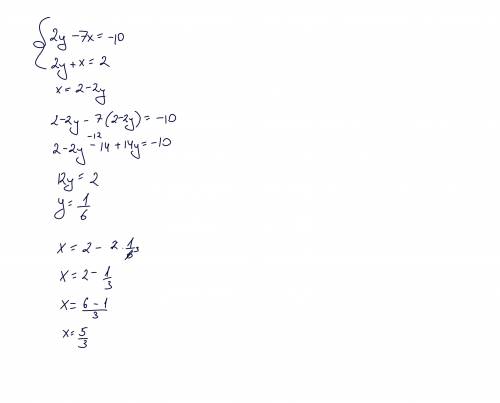 2y - 7x = -10
2y + x = 2
x = 2 - 2y
2 - 2y - 7(2 - 2y) = -10
-12
2 - 2y - 14 + 14y = -10
12y = 2
y = 1/6
x = 2 - 2 · 1/6 3
x = 2 - 1/3
x = (6 - 1)/3
x = 5/3